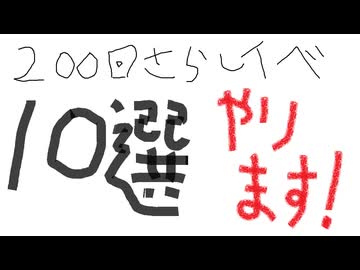 200回さらしイベ
10選
やり
ます!